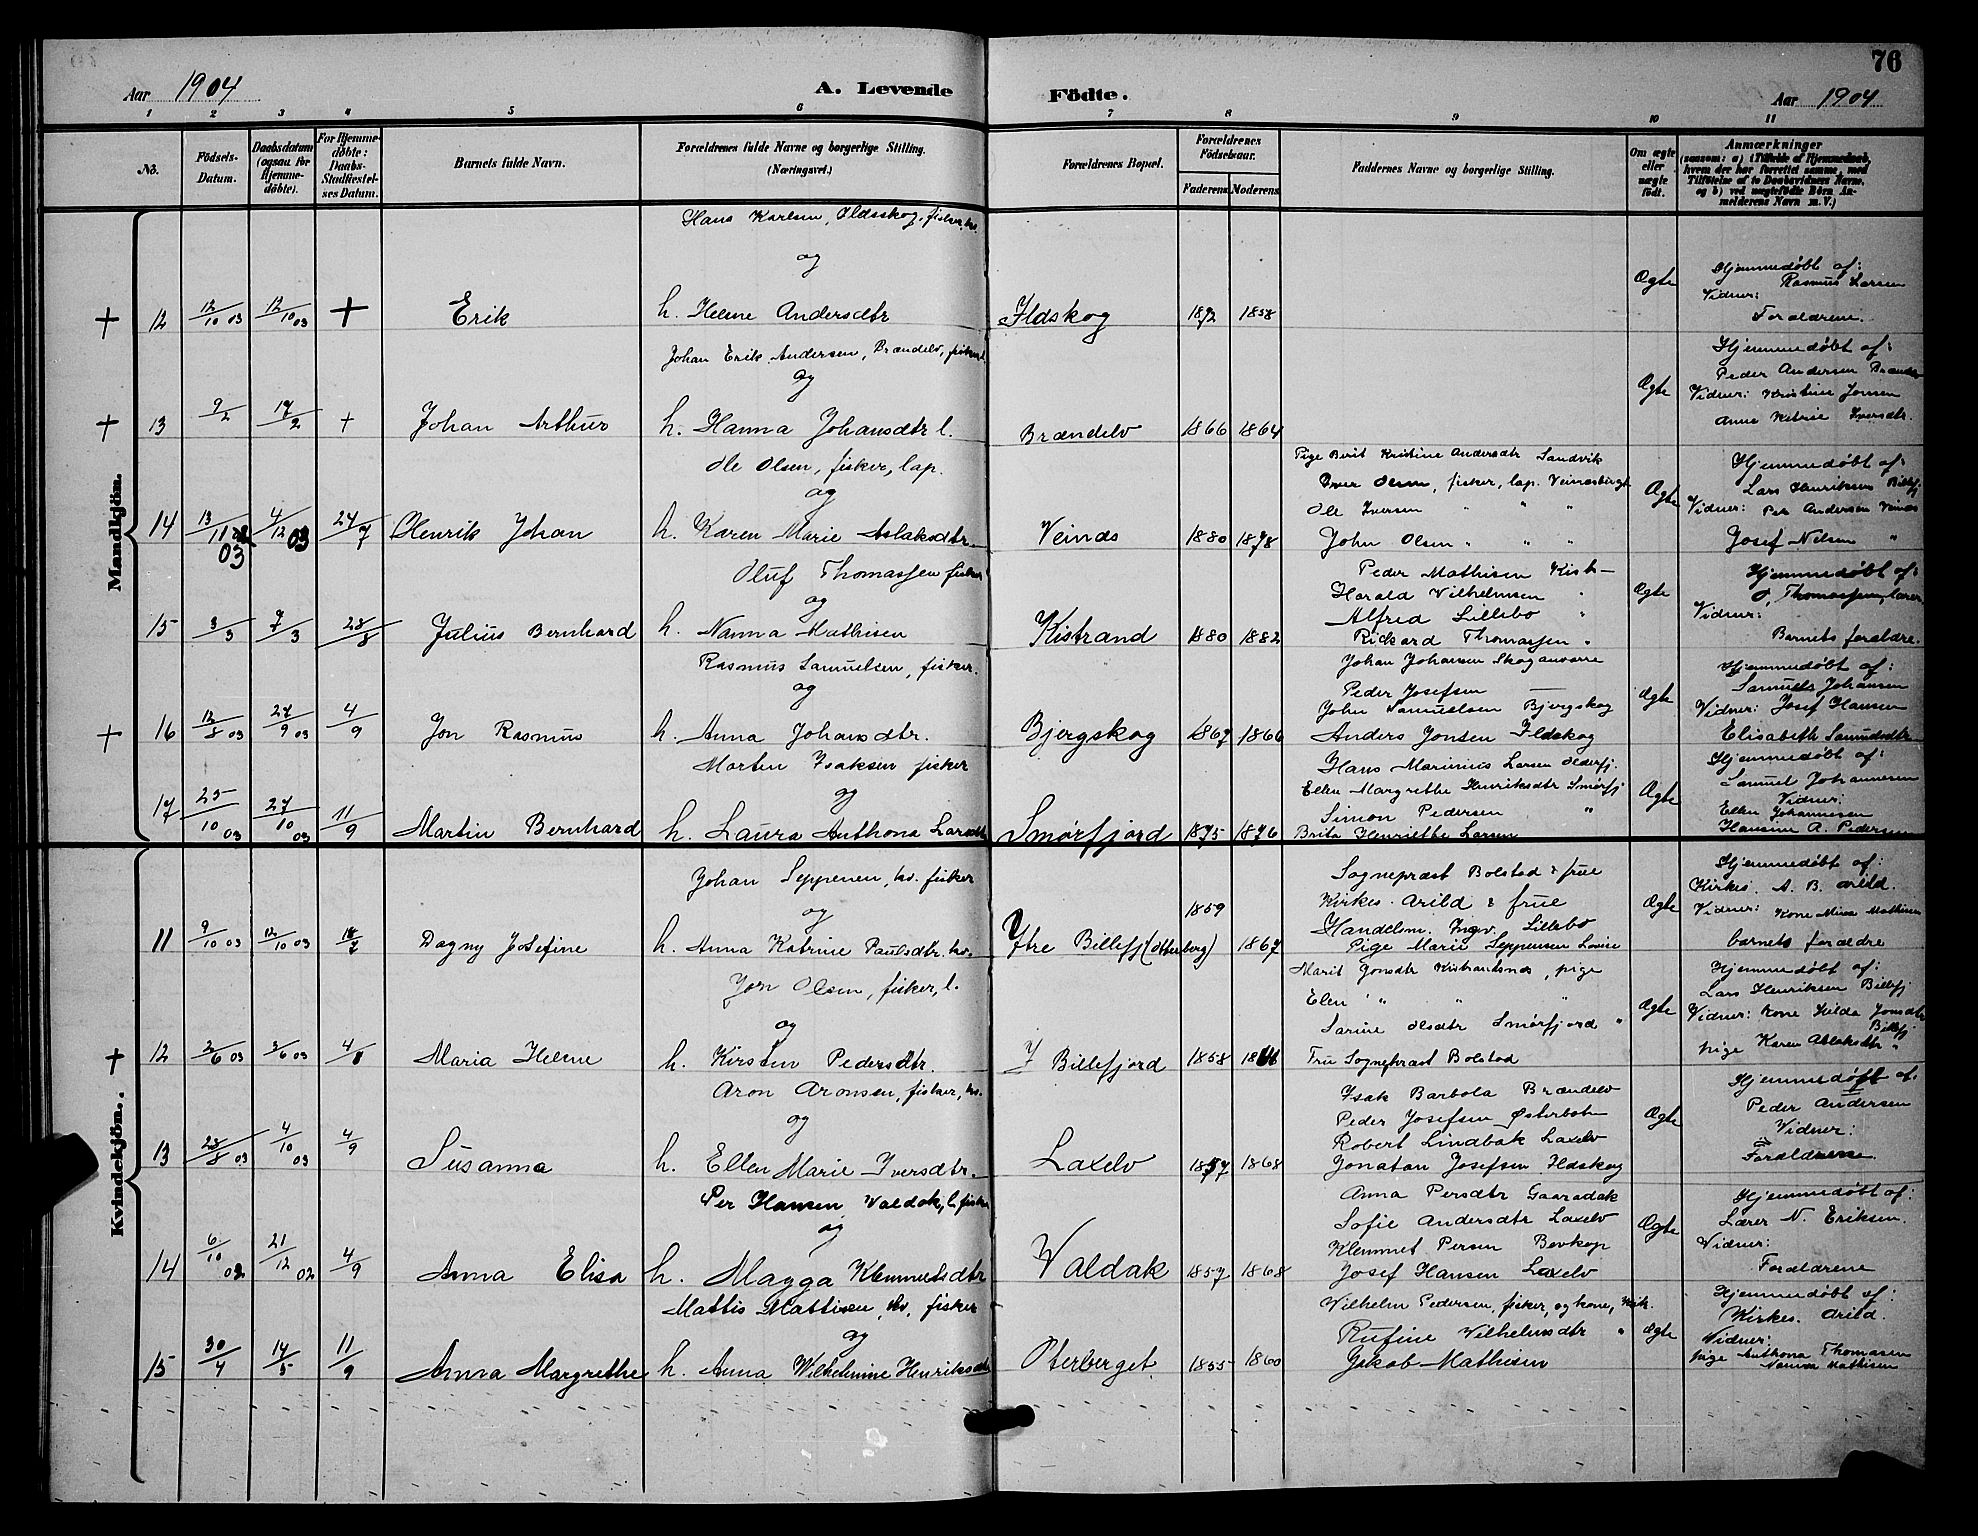 76
Aar 1904
A. Levende Födte.
Aar 1904
1 2 3 4 5 6 7 8 9 10 11
No.
Födsels-Datum.
Daabsdatum (ogsaa for Hjemme-döbte).
For Hjemme-döbte: Daabs-Stadfæstel-ses Datum.
Barnets fulde Navn.
Forældrenes fulde Navne og borgerlige Stilling. (Næringsvei.)
Forældrenes Bopæl.
Forældrenes Födselsaar.
Faderens. Moderens.
Faddernes Navne og borgerlige Stilling.
Om ægte eller uægte födt.
Anmærkninger
(saasom: a) i Tilfælde af Hjemmedaab, hvem der har forrettet samme, med Tilföielse af to Daabsvidners Navne, og b) ved uægtefödte Börn An-melderens Navn m. V.)
Mandkjön.
Hans Karlsen, Ildsskog, fisker, kv.
og
+ 12 12/10 03 12/10 03 + Erik h. Helene Andersdtr Ildskog 1872 1858 Ægte
Hjemmedøbt af:
Rasmus Larsen
Vidner:
Forældrene.
Johan Erik Andersen, Brændelv, fisker l.
og
+ 13 9/2 17/2 + Johan Arthur h. Hanna Johansdtr l. Brændelv 1866 1864 Ægte
Hjemmedøbt af:
Peder Andersen Brændelv
Vidner: Kristine Jonsen
Anne Katrine Iversdtr.
Ole Olsen, fisker, lap.
og
14 13/11 03 4/12 03 24/7 Henrik Johan h. Karen Marie Aslaksdtr. Veinæs 1880 1878
Pige Berit Kristine Andersdtr Sandvik
Iver Olsen, fisker, lap. Veinesbugt
Ole Iversen " " "
John Olsen " " "
Ægte
Hjemmedøbt af:
Lars Henriksen Billefj
Vidner: Per Andersen Veines
Josef Nilsen "
Oluf Thomassen fisker
og
15 3/3 7/3 28/8 Julius Bernhard h. Nanna Mathisen Kistrand 1880 1882
Peder Mathisen Kistr
Harald Wilhelmsen "
Alfred Lillebo "
Rickard Thomassen "
Ægte
Hjemmedøbt af:
O. Thomassen, lærer
Vidner:
Barnets forældre.
Rasmus Samuelsen, fisker.
og
+ 16 12/8 03 27/9 03 4/9 Jon Rasmus h. Anna Johansdtr. Bjergskog 1867 1866
Johan Johansen Skoganvarre
Peder Josefsen —
John Samuelsen Bjergskog
Anders Jonsen Ildskog
Ægte
Hjemmedøbt af:
Samuels Johansen
Vidner: Josef Hansen
Elisabeth Samuelsdtr
Morten Isaksen fisker
og
17 25/10 03 27/10 03 11/9 Martin Bernhard h. Laura Anthona Larsdtr Smørfjord 1875 1876
Hans Marinius Larsen Olderfj.
Ellen Margrethe Henriksdtr Smørfj
Simon Pedersen "
Brita Henriette Larsen
Ægte
Hjemmedøbt af:
Samuel Johannesen
Vidner:
Ellen Johannesen
Hansine A. Pedersen
Kvindekjön.
Johan Seppenen, kv. fisker
og
11 9/10 03 12/10 03 18/7 Dagny Josefine h. Anna Katrine Paulsdtr. kv. Ytre Billefj (Otterberg) 1859 1867
Sognepræst Bolstad & frue
Kirkes. Arild & frue
Handelsm. Ingv. Lillebo
Pige Marie Seppensen Lovise
Ægte
Hjemmedøbt af:
Kirkes. A. B. Arild.
Vidner: Kone Mina Mathisen
barnets forældre
Jon Olsen, fisker, l.
og
+ 12 2/6 03 3/6 03 Maria Helene h. Kirsten Pedersdtr. I Billefjord 1858
Marit Jonsdtr Kistrandsnes, pige
Elen " " "
Sarine Olsdtr Smørfjord "
Fru Sognepræst Bolstad
Ægte
Hjemmedøbt af:
Lars Henriksen Billefj
Vidner: Kone Hilda Jonsdtr Billefj
pige Karen Aslaksdtr "
Aron Aronsen, fisker, kv.
og
13 28/8 03 4/10 03 4/9 Susanna h. Ellen Marie Iversdtr. Laxelv 1857 1868
Isak Barbola Brændelv
Peder Josefsen Østerbotn
Robert Lindbak Laxelv
Jonatan Josefsen Ildskog
Ægte
Hjemmedøbt af:
Peder Andersen
Vidner:
Forældrene.
Per Hansen Valdak, l. fisker
og
14 6/10 02 21/12 02 4/9 Anna Elisa h. Magga Klemmetsdtr Valdak 1857 1868
Anna Persdtr Gaaradak
Sofie Andersdtr Laxelv
Klemmet Persen Bevkop
Josef Hansen Laxelv
Ægte
Hjemmedøbt af:
Lærer N. Eriksen.
Vidner:
Forældrene
Mattis Mattisen, kv, fisker
og
15 30/4 14/5 11/9 Anna Margrethe h. Anna Wilhelmine Henriksdtr Oterberget 1855 1860
Wilhelm Pedersen, fisker, og kone, Kistr.
Rufine Wilhelmsdtr "
Jakob Mathisen
Ægte
Hjemmedøbt af:
Kirkes. Arild.
Vidner:
pige Anthona Thomasen
Nanna Mathisen